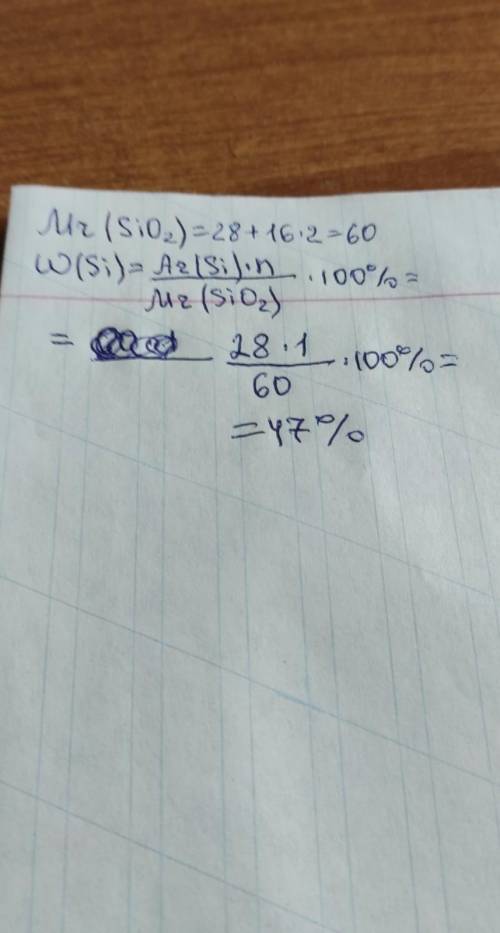 Mr (SiO₂)=28+16·2=60
W(Si)=Ar(Si)·n/Mr(SiO₂)·100%=
= 28·1/60·100%=
=47%